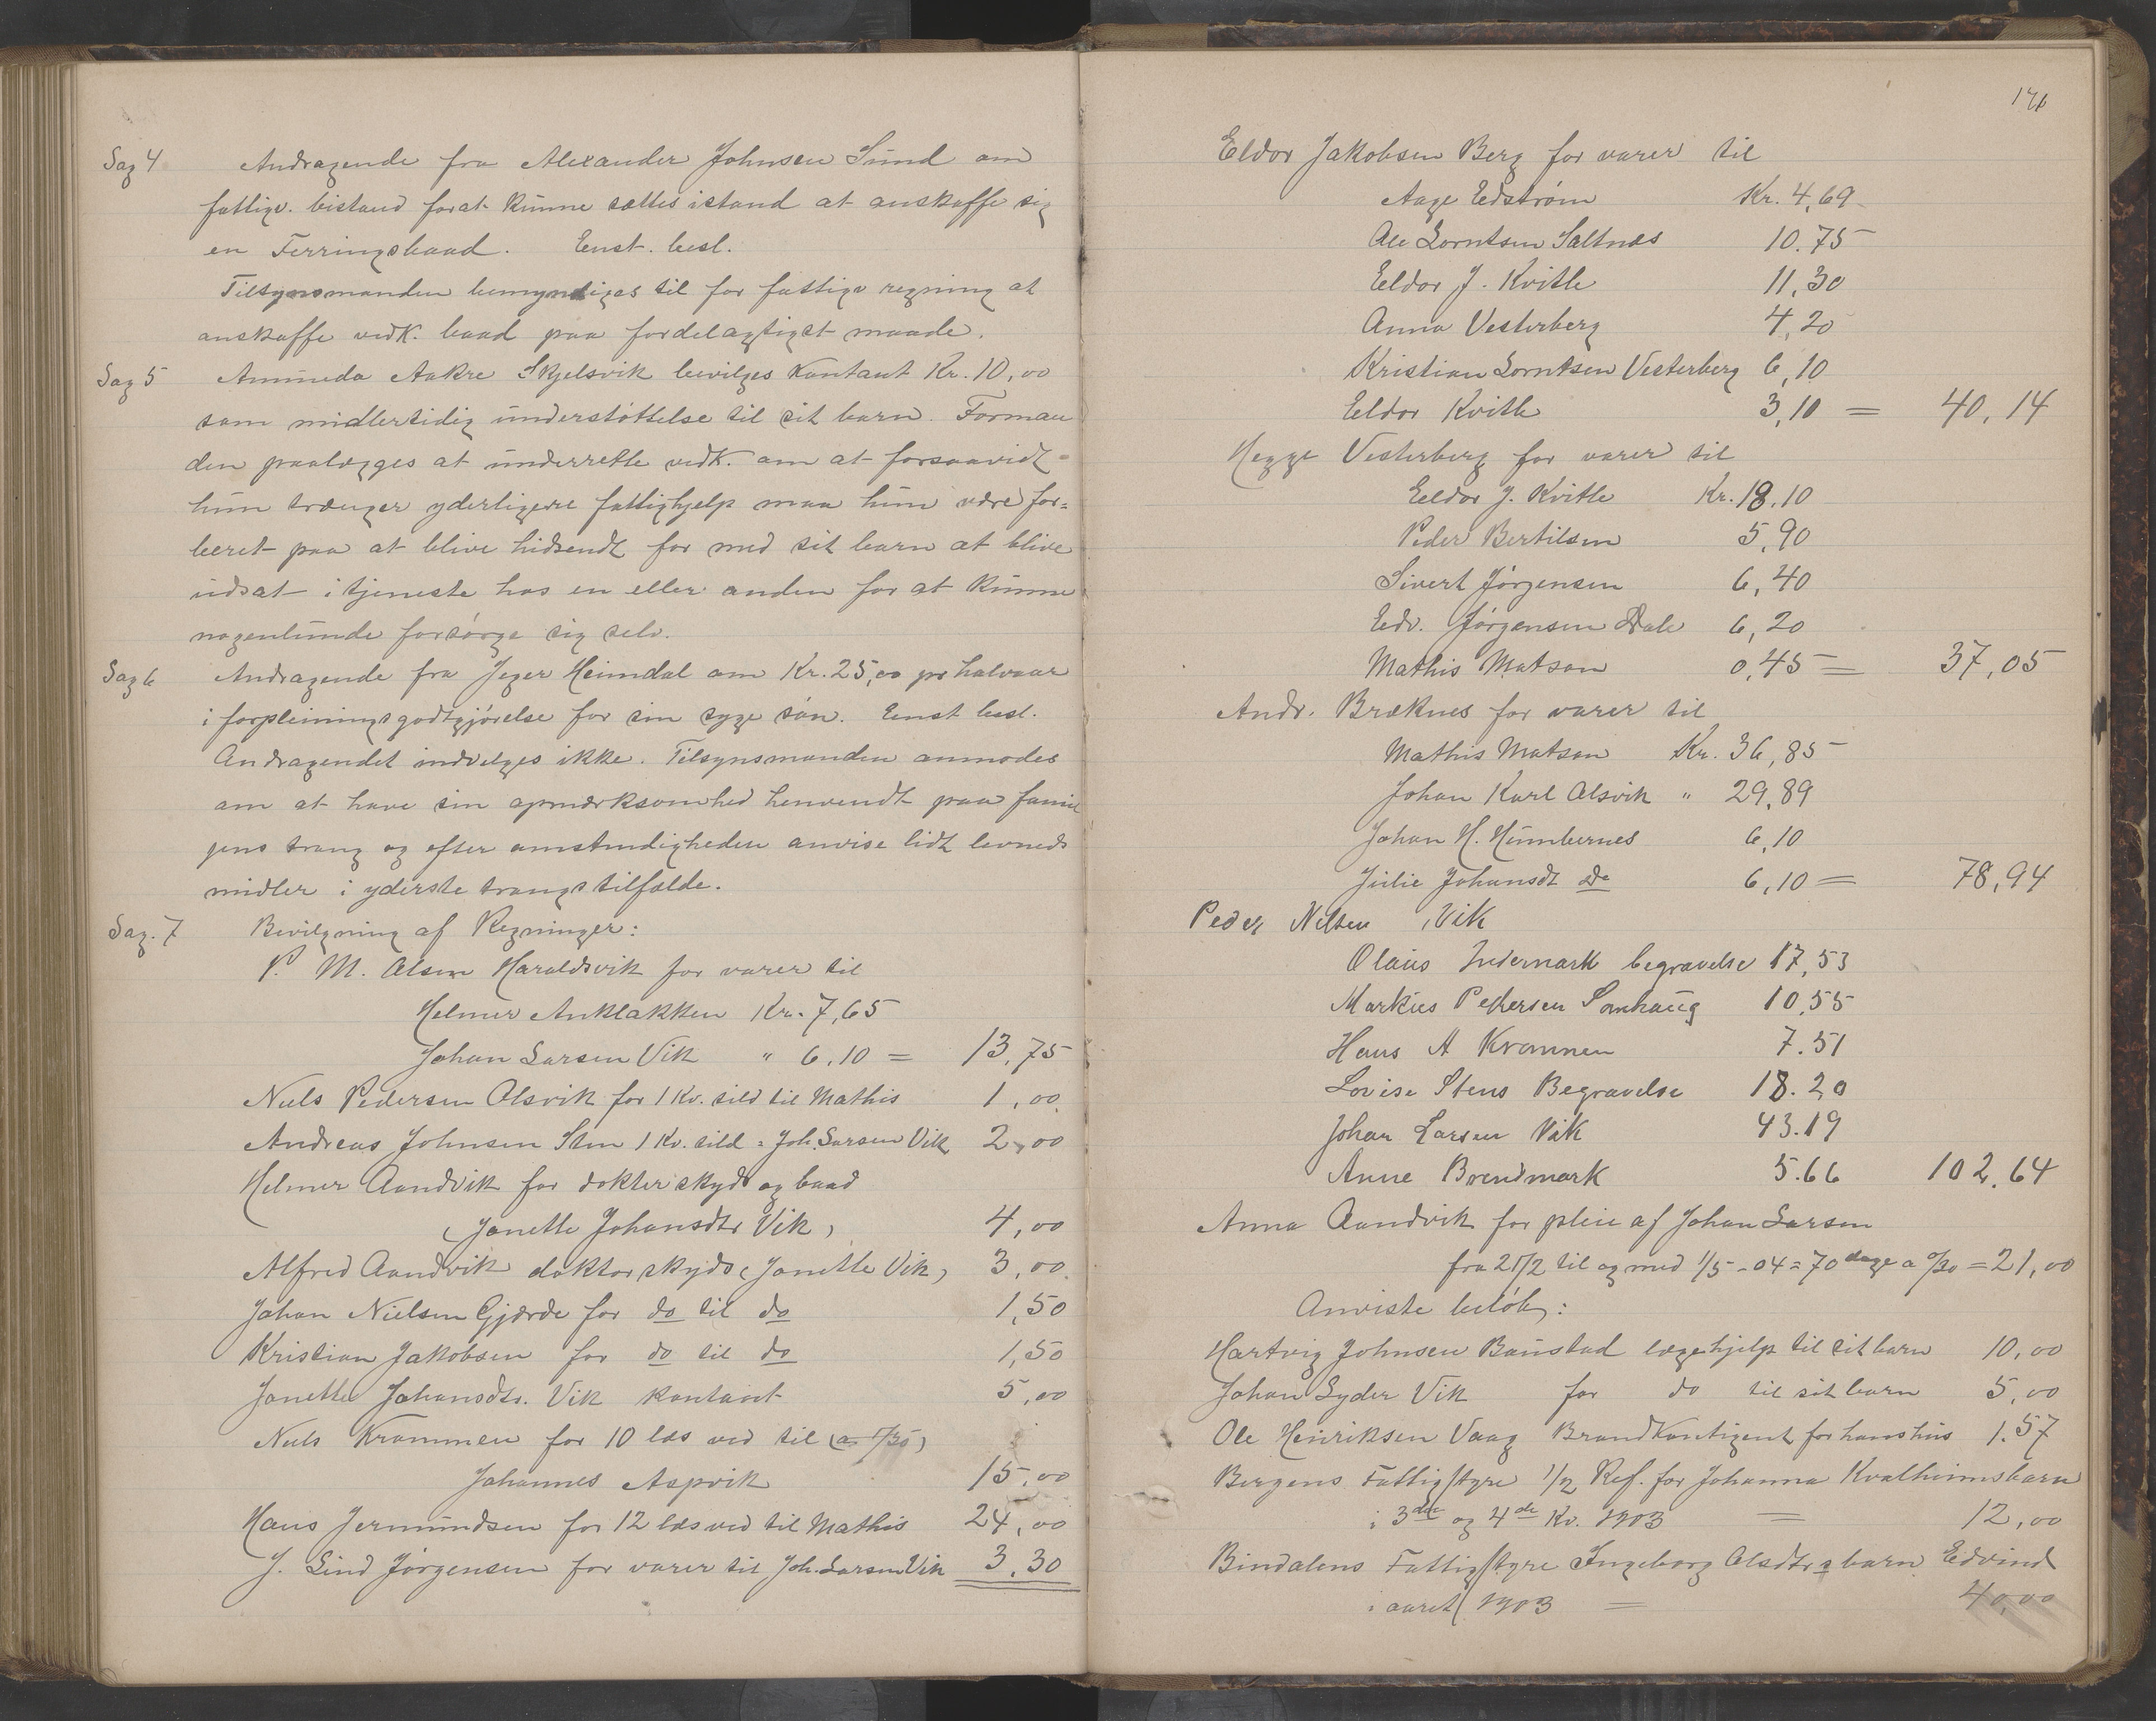 Sag 4 Andragende fra Alexander Johnsen Sund om
fattigv. bistand forat kunne sættes istand at anskaffe sig
en Færringsbaad. Enst. besl.
Tilsynsmanden bemyndiges til for fattigv regning at
anskaffe vedk. baad paa fordelagtigst maade.
Sag 5 Amunda Aakre Skjelsvik bevilges kontant Kr. 10,00
som midlertidig understøttelse til sit barn. Forman
den paalægges at underrette vedk. om at forsaavidt
hun trænger yderligere fattighjelp maa hun være for=
beret paa at blive hidsendt for med sit barn at blive
udsat i tjeneste hos en eller anden for at kunne
nogenlunde forsørge sig selv.
Sag 6 Andragende fra Jeger Heimdal om Kr. 25,00 pr halvaar
i forpleiningsgodtgjørelse for sin syge søn. Enst besl.
Andragendet indvilges ikke. Tilsynsmanden anmodes
om at have sin opmærksomhed henvendt paa famil
jens trang og efter omstændigheden anvise lidt levneds
midler i yderste trangstilfælde.
Sag. 7 Bevilgning af Regninger:
P. M. Olsen Haraldsvik for varer til
Helmer Anklakken Kr. 7,65
Johan Larsen Vik " 6.10 = 13,75
Nils Pedersen Olsvik for 1 Kv. sild til Mathis 1,00
Andreas Johnsen Sten 1 Kv. sild = Joh. Larsen Vik 2,00
Helmer Aandvik for dokterskyds og baad
(Janette Johansdtr Vik) 4,00
Alfred Aandvik doktorskyds (Janette Vik) 3,00
Johan Nielsen Gjærde for do til do 1,50
Kristian Jakobsen for do til do 1,50
Janette Johansdtr. Vik kontant 5,00
Nils Krommen for 10 læs ved til
Johannes Aspvik 15,00
Hans Jermundsen for 12 læs ved til Mathis 24,00
J. Lind Jørgensen for varer til Joh. Larsen Vik 3,30
176
Eldor Jakobsen Berg for varer til
Aage Edstrøm Kr. 4,69
Ole Lorntsen Saltnes 10.75
Eldor J. Kvithe 11,30
Anna Vesterberg 4,20
Kristian Lorntsen Vesterberg 6,10
Eldor Kvithe 3,10 = 40,14
Hegge Vesterberg for varer til
Eeldor J. Kvithe Kr. 18,10
Peder Bertilsen 5,90
Sivert Jørgensen 6,40
Edv. Jørgensen Dale 6,20
Mathis Matson 0,45 = 37,05
Andr. Bræknes for varer til
Mathis Matson Kr. 36,85
Johan Karl Olsvik " 29,89
Johan H. Humbernes 6,10
Julie Johansdt do 6,10 = 78,94
Peder Nelsen Vik
Olaus Indermark begravelse 17,53
Markus Pedersen Somhaug 10,55
Hans A Krommen 7.51
Lovise Stens Begravelse 18.20
Johan Larsen Vik 43.19
Anne Brendmark 5.66 102.64
Anna Aandvik for pleie af Johan Larsen
fra 21/2 til og med 1/5 - 04 = 70 dage a 0/30 = 21,00
Anviste beløb:
Hartvig Johnsen Baustad lægehjelp til sit barn 10,00
Johan Lyder Vik for do til sit barn 5,00
Ole Henriksen Vaag Brandkontigent for hans hus 1.57
Bergens Fattigstyre 1/2 Ref. for Johanna Kvalheims barn
i 3die og 4de Kv. 1903 = 12,00
Bindalens Fattigstyre Ingeborg Olsdtrs barn Edvind
i aaret 1903 = 40,00